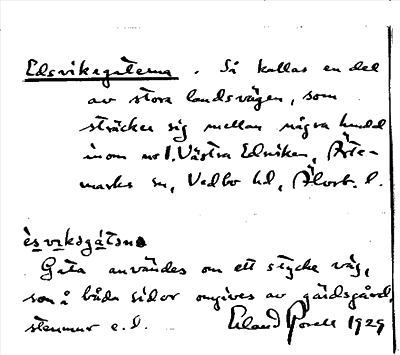 Edsviksgatorna. Så kallas en del
av stora landsvägen, som
sträcker sig mellan några hundd
inom no 1. Västra Edsviken, Ärte-
marks sn, Vedbo hd, Älvsb. l.
è̱sviksgátơnɑ
Gata användes om ett stycke väg,
som å båda sidor omgives av gärdsgård,
stenmur e. d. Erland Borell 1929